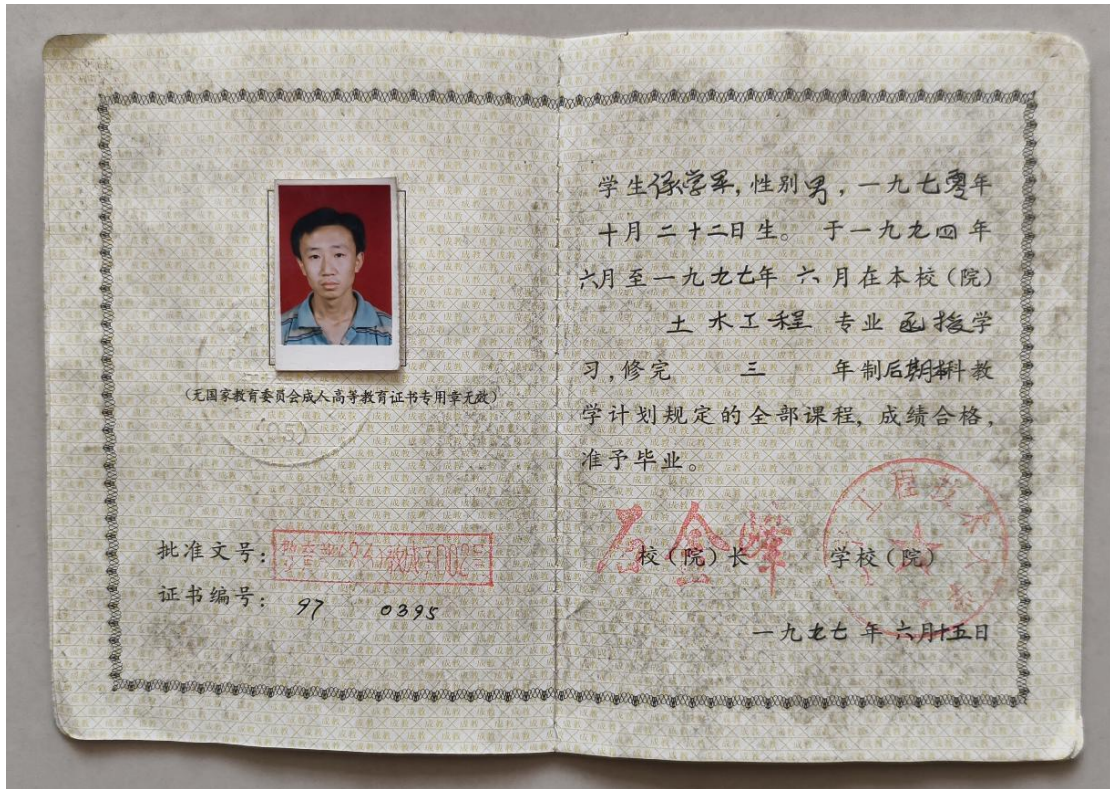 (无国家教育委员会成人高等教育证书专用章无效)
批准文号:
证书编号: 97 0395
学生学军,性别男,一九七零年
十月二十二日生。于一九九四年
六月至一九九七年六月在本校(院)
土木工程 专业 函授学
习,修完 三 年制后期本科教
学计划规定的全部课程,成绩合格,
准予毕业。
石金峰
校(院)长 学校(院)
一九九七年六月十五日